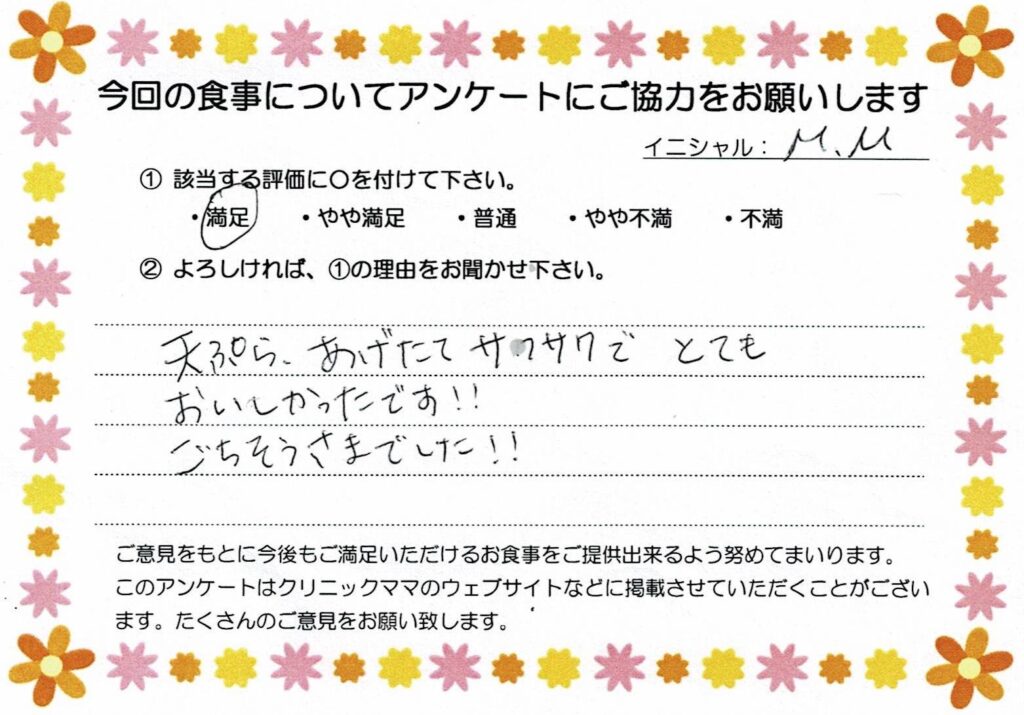 今回の食事についてアンケートにご協力をお願いします
イニシャル： M.M
① 該当する評価に〇を付けて下さい。
・満足 ・やや満足 ・普通 ・やや不満 ・不満
② よろしければ、①の理由をお聞かせ下さい。
天ぷら、あげたて サクサクで とても
おいしかったです!!
ごちそうさまでした!!
ご意見をもとに今後もご満足いただけるお食事をご提供出来るよう努めてまいります。
このアンケートはクリニックママのウェブサイトなどに掲載させていただくことがござい
ます。たくさんのご意見をお願い致します。